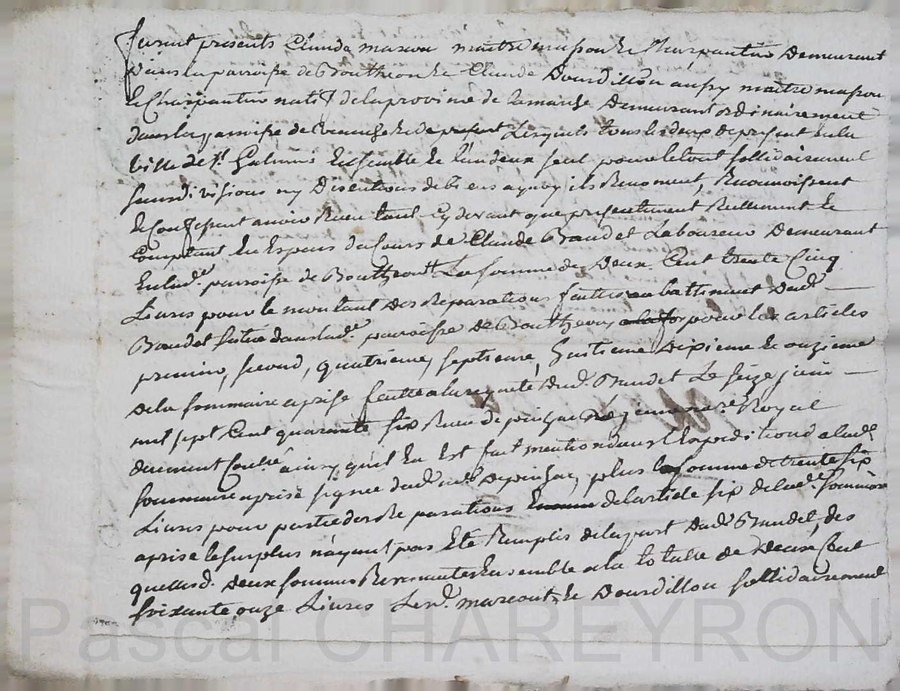 furent presents Claude marcou maitre masson Et Charpantier Demeurant
Dans la parroisse de Boutheon Et Claude Dourdillou aussy maitre masson
Et Charpantier natif de la province de la marche Demeurant ordinairement
dans la parroisse de Et de present Lesquels tous les deux de present En la
Ville de St Galmier Ensemble Et l'un deux seul pour le tout sollidairement
sans di. visions ny Discutions de biens a quoy ils Renoncent, Reconnoissent
Et Confessent avoir Receu tant Cy devant que presentement Reellement Et
Comptant En Especes du Cours de Claude Baudet Laboureur Demeurant
En lad. parroisse de Boutheon La somme de Deux Cent trente Cinq
Livres pour le montant des Reparations faittes au battiment dud.
Baudet situé dans lad. parroisse de Boutheon pour les articles
premier, second, quatrieme, septieme, huitieme Dixieme Et onzieme
De la sommaire aprise faitte a la requete dud. Baudet Le seize juin
mil sept Cent quarante six Receu de no.re Royal
duement Contré ainsy qu'il En Est fait mention dans l'Expedition de lad.
sommaire aprise signée dud. plus la somme de trente six
Livres pour partie des Reparations de l'article six de lad. sommaire
aprise le surplus n'ayant pas Eté Remplis de la part dud. Baudet, des
quelles d. Deux sommes Revenantes Ensemble a la totale de Deux Cent
soixante onze Livres Les d. marcout, Et Dourdillou sollidairement
Pascal CHAREYRON